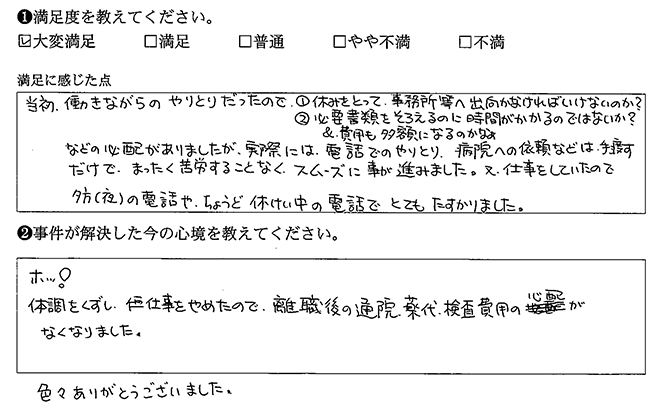 ❶満足度を教えてください。
☑大変満足 □満足 □普通 □やや不満 □不満
満足に感じた点
当初、働きながらの やりとりだったので、①休みをとって、事務所等へ出向かなければいけないのか?
②必要書類をそろえるのに時間がかかるのではないか?
&費用も多額になるのかなぁ
などの心配がありましたが、実際には、電話でのやりとり、病院への依頼などは、手渡す
だけで、まったく苦労することなく、スムーズに事が進みました。又、仕事をしていたので
夕方(夜)の電話や、ちょうど休けい中の電話で とてもたすかりました。
❷事件が解決した今の心境を教えてください。
ホッ!
体調をくずし、仕事をやめたので、離職後の通院、薬代、検査費用の心配が
なくなりました。
色々ありがとうございました。